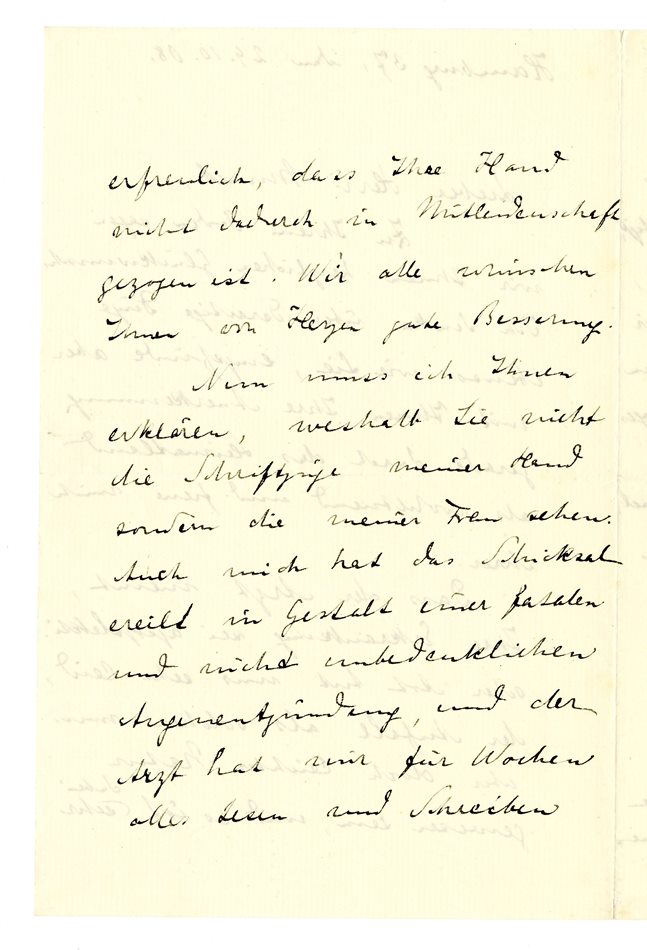 erfreulich, dass Ihre Hand
nicht dadurch in Mitleidenschaft
gezogen ist. Wir alle wünschen
Ihnen von Herzen gute Besserung.
Nun muss ich Ihnen
erklären, weshalb Sie nicht
die Schriftzüge meiner Hand
sondern die meiner Frau sehen.
Auch mich hat das Schicksal
ereilt in Gestalt einer fatalen
und nicht unbedenklichen
Augenentzündung, und der
Arzt hat mir für Wochen
alles Lesen und Schreiben